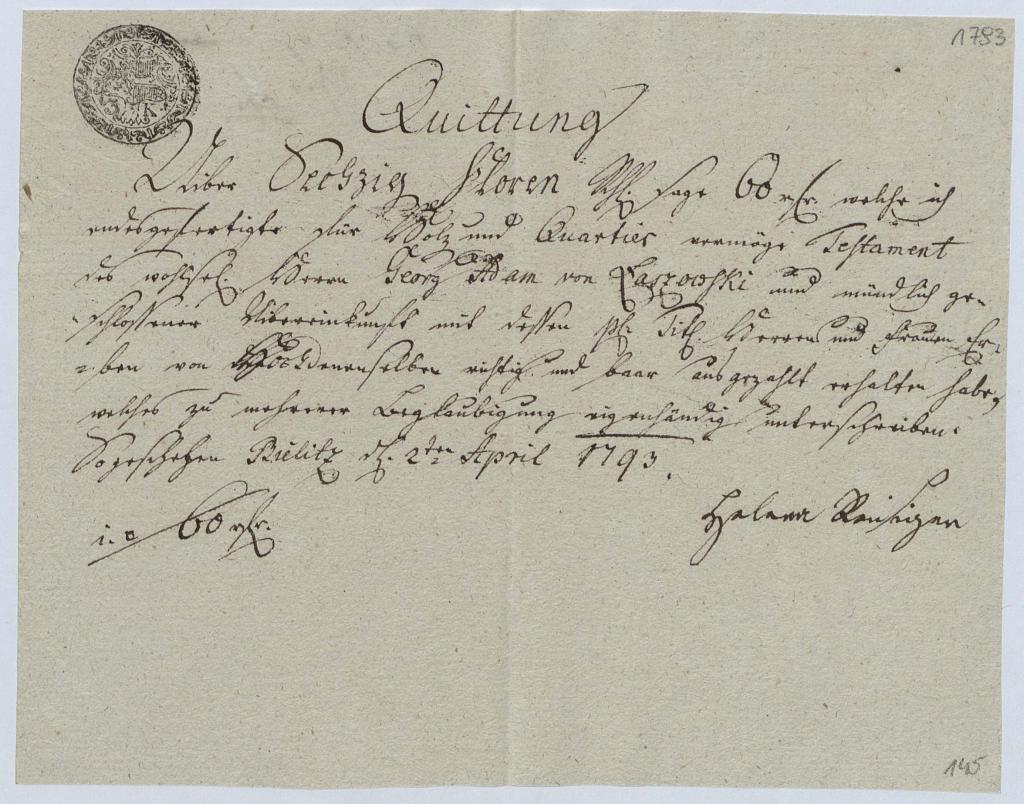 1793
3 K
Quittung
Uiber Sechzig Floren Rh. sage 60 rfr. welche ich
endesgefertigte für Holz und Quartier vermöge Testament
des wohlsel. Herrn Georg Adam von Laszowski und mündlich ge-
schlossener Übereinkunft mit dessen pl. Titl. Herren und Frauen Er-
ben von Hochdenenselben richtig und baar ausgezahlt erhalten habe,
welches zu mehrerer Beglaubigung eigenhändig unterschreibe.
So geschehen Bielitz d. 2ten April 1793.
i. e. 60 rfr.
Helena
145